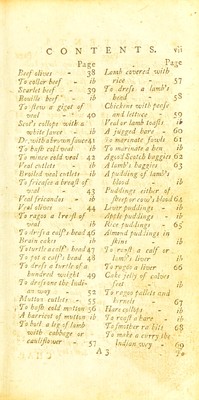 CONTENTS. vii
Page
Beef oliver - 38
To collar beef - ib
Scarlet beef - 39
Bouille beef - ib
To stew a gigot of
veal - 40
Scot's collops with a
white sauce - ib
Do. with a brown sauce 41
To hash cold veal ib
To mince cold veal 42
Veal cutlets - ib
Broiled veal cutlets ib
To fricasee a breast of
veal - 43
Veal fricandos - ib
Veal olives - 44
To ragoo a breast of
veal - ib
To dress a calf's head 46
Brain cakes ib
To turtle a calf's head 47
To pot a calf's head 48
To dress a turtle of a
hundred weight 49
To dress one the Indi-
an way - 52
Mutton cutlets - 55
To hash cold mutton 56
A harricot of mutton ib
To boil a leg of lamb
with cabbage or
cauliflower - 57
Page
Lamb covered with
rice - 57
To dress a lamb's
head - 58
Chickens with pease
and lettuce - 59
Veal or lamb toasts ib
A jugged hare - 60
To marinate fowls 61
To marinate a hen ib
A good Scotch haggies 62
A lamb's haggies 63
A pudding of lamb's
blood - ib
Puddings either of
sheep or cow's blood 64
Liver puddings - ib
Apple puddings - ib
Rice puddings - 65
Almond puddings in
skins ib
To roast a calf or
lamb's liver ib
To ragoo a liver 66
Cake jelly of calves
feet - ib
To ragoo pallets and
kernels - 67
Hare collops - ib
To roast a hare - ib
To smother rabbits 68
To make a curry the
Indian way - 69
A 3 To